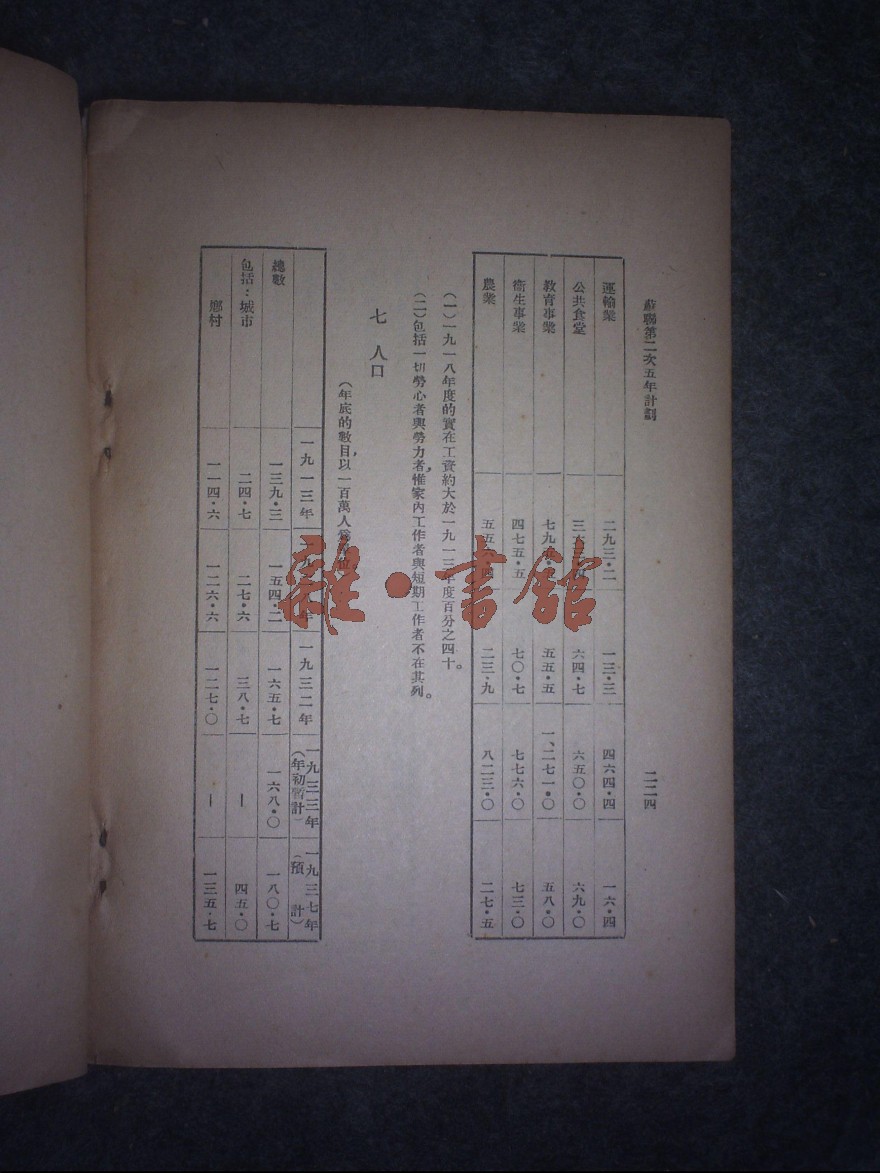 蘇聯第二次五年計劃 二二四
運輸業 二九三·二 一三·三 四六四·四 一六·四
公共食堂 六四·七 六五〇·〇 六九·〇
教育事業 五五·五 一、二七一·〇 五八·〇
衞生事業 四七五·五 七〇·七 七七六·〇 七三·〇
農業 二三·九 八二三·〇 二七·五
(一)一九一八年度的實在工資約大於一九一三年度百分之四十。
(二)包括一切勞心者與勞力者,惟家內工作者與短期工作者不在其列。
七 人口
(年底的數目,以一百萬人爲單位)
一九一三年 一九二八年 一九三二年 一九三三年(年初暫計) 一九三七年(預計)
總數 一三九·三 一五四·二 一六五·七 一六八·〇 一八〇·七
包括:城市 二四·七 二七·六 三八·七 — 四五·〇
鄉村 一一四·六 一二六·六 一二七·〇 — 一三五·七
雜·書館